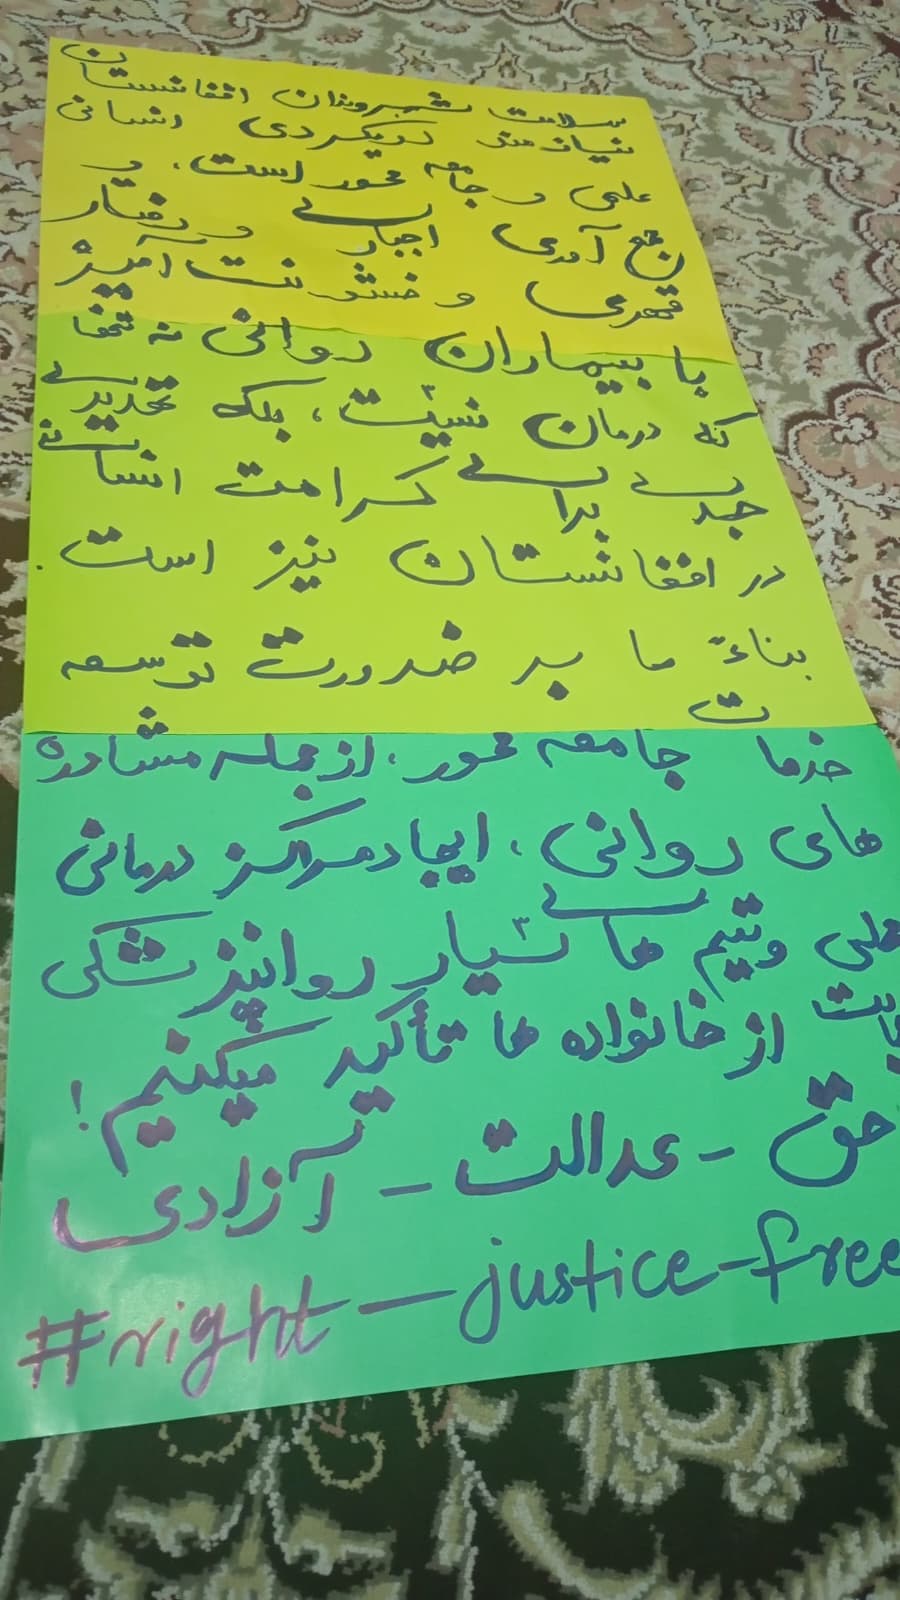 سلامت شهروندان افغانستان
نیازمند رویکردی انسانی
علمی و جامعه محور است، و
جمع آوری اجباری و رفتار
قهری و خشونت آمیز
با بیماران روانی نه تنها
که درمان نیست، بلکه تهدیدی
جدی برای کرامت انسانی
در افغانستان نیز است.
بناءً ما بر ضرورت توسعه
خدمات جامعه محور، از جمله مشاوره
های روانی، ایجاد مراکز درمانی
محلی و تیم های سیار روانپزشکی
حمایت از خانواده ها تأکید میکنیم!
حق - عدالت - آزادی
#right-justice-free